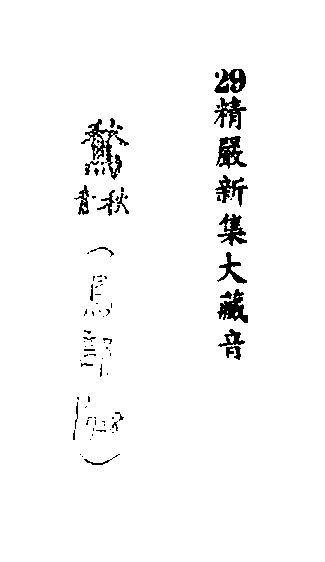 29精嚴新集大藏音
鶖
秋音
（鳥部